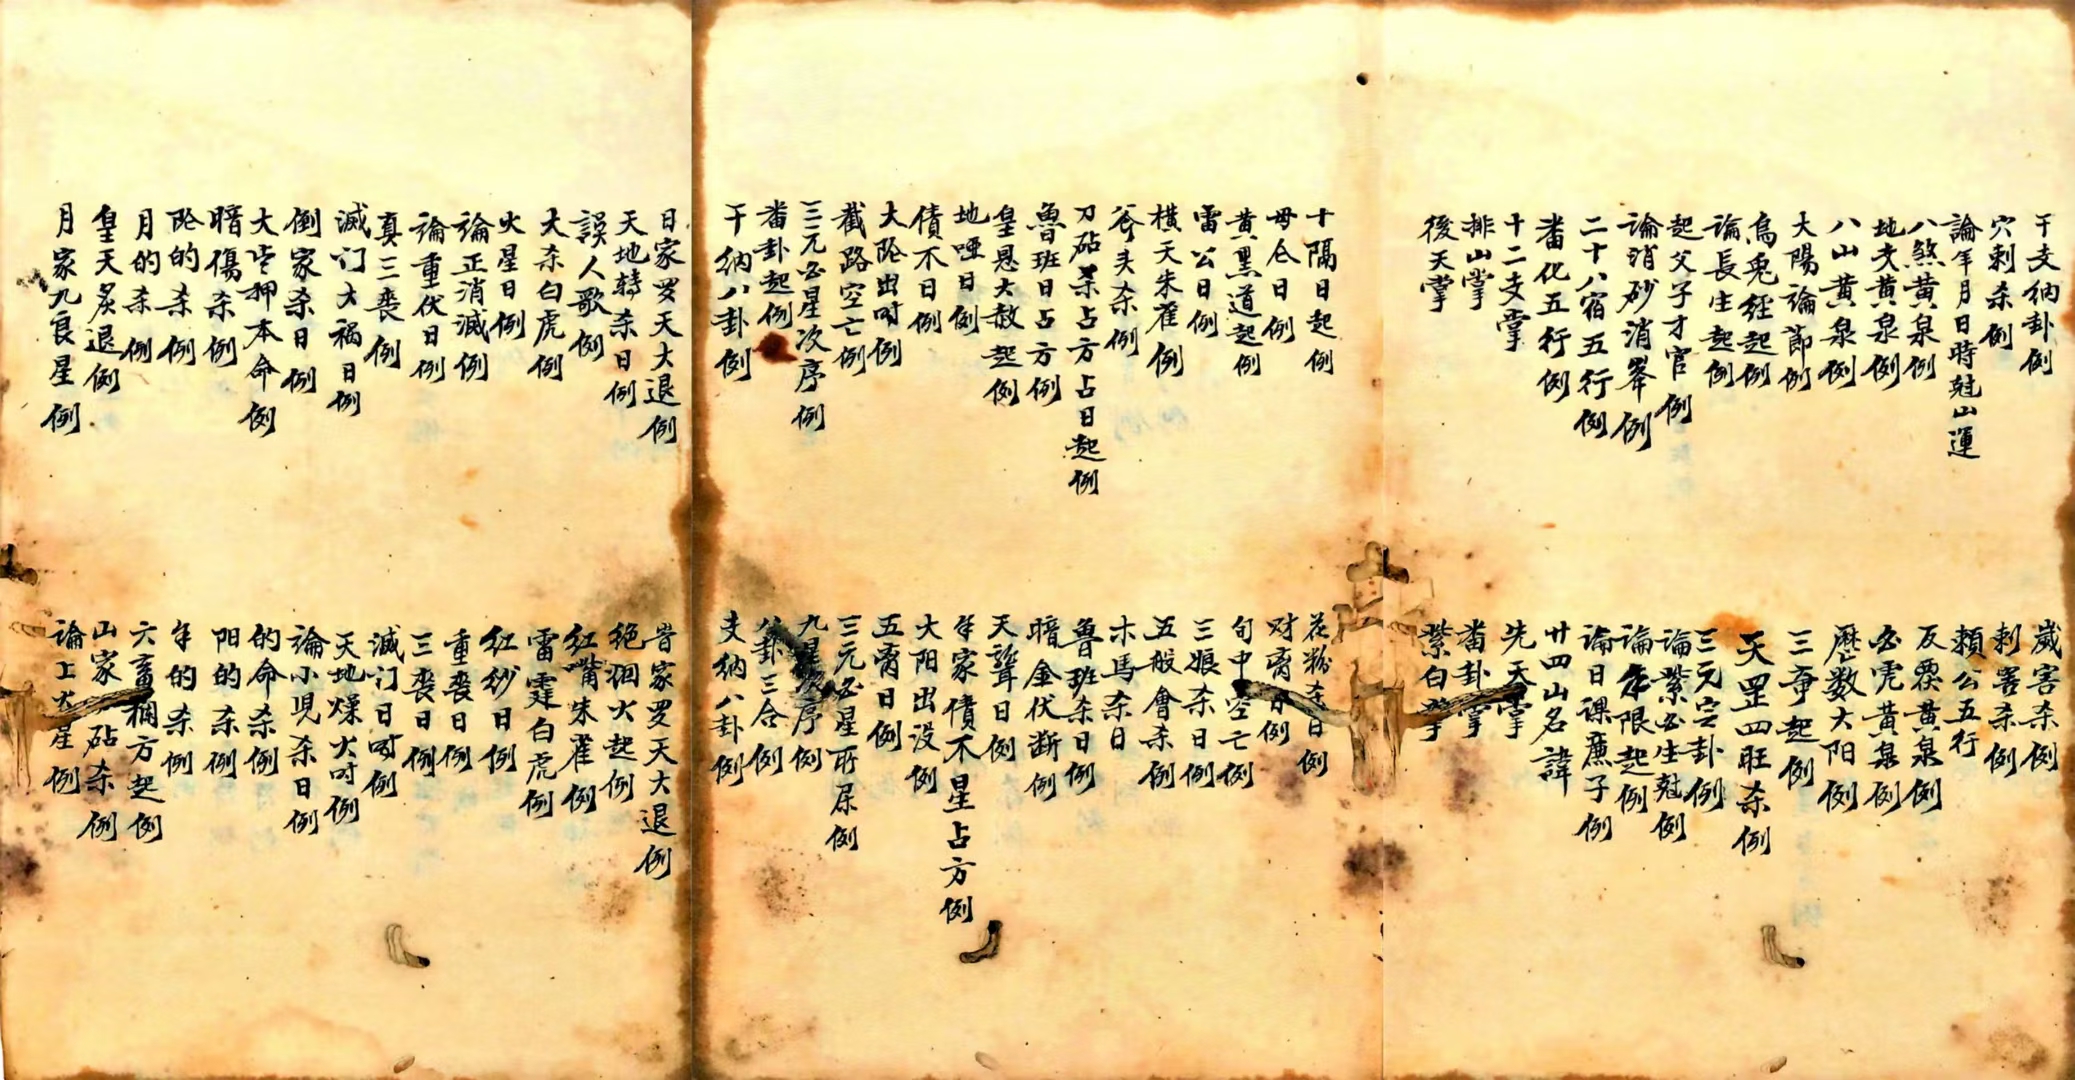 干支納卦例
穴刺杀例
論年月日時尅山運
八煞黄泉例
地支黄泉例
八山黄泉例
大陽論節例
烏兎经起例
論長生起例
起父子才官例
論消砂消峯例
二十八宿五行例
畨化五行例
十二支掌
排山掌
後天掌
嵗害杀例
刺害杀例
頼公五行
反覆黄泉例
必死黄泉例
歷数大阳例
三奇起例
天罡四旺杀例
三元空卦例
論紫必生尅例
論年限起例
論日课薦子例
廿四山名諱
先天掌
畨卦掌
紫白掌
十隔日起例
母仓日例
黄黑道起例
雷公日例
横天朱雀例
斧头杀例
刀砧杀占方占日起例
魯班日占方例
皇恩大赦起例
地啞日例
債不日例
大阴出时例
截路空亡例
三元必星次序例
畨卦起例
干纳八卦例
花粉杀日例
对宵日例
旬中空亡例
三娘杀日例
五般會杀例
木馬杀日
魯班杀日例
暗金伏断例
天聋日例
年家債不星占方例
大阳出没例
五宵日例
三元必星所属例
九星次序例
八卦三合例
支纳八卦例
日家罗天大退例
天地轉杀日例
誤人歌例
大杀白虎例
火星日例
論正消滅例
論重伏日例
真三丧例
滅门大禍日例
倒家杀日例
大空押本命例
暗傷杀例
阴的杀例
月的杀例
皇天炙退例
月家九良星例
昔家罗天大退例
绝烟火起例
紅嘴朱雀例
雷霆白虎例
紅纱日例
重丧日例
三丧日例
滅门日时例
天地燥火时例
論小児杀日例
的命杀例
阳的杀例
年的杀例
六畜栏方起例
山家砧杀例
論上火星例